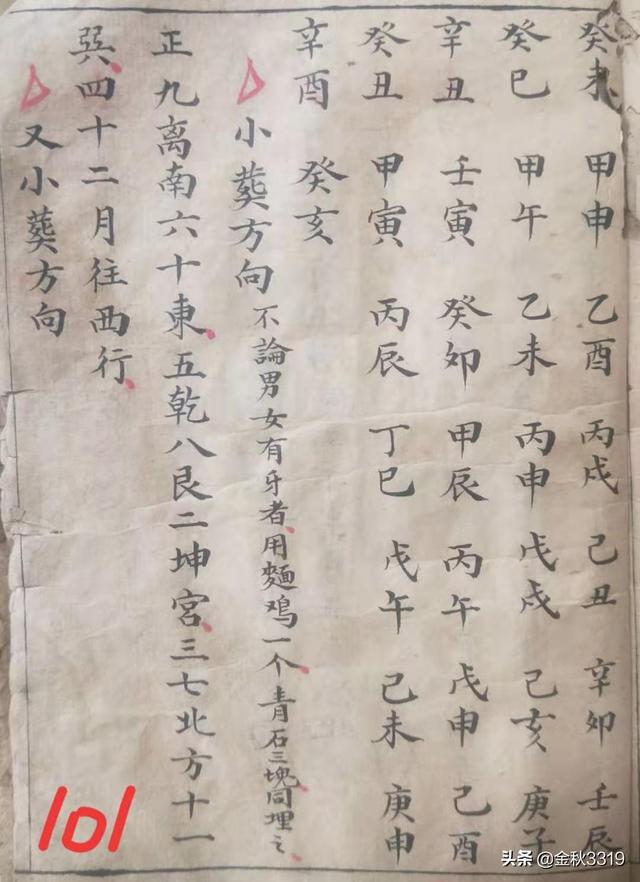 癸未 甲申 乙酉 丙戌 己丑 辛卯 壬辰
癸巳 甲午 乙未 丙申 戊戌 己亥 庚子
辛丑 壬寅 癸卯 甲辰 丙午 戊申 己酉
癸丑 甲寅 丙辰 丁巳 戊午 己未 庚申
辛酉 癸亥
小葬方向 不論男女有牙者用麵鸡一个青石三塊同埋之
正九离南六十東五乾八艮二坤宮三七北方十一
巽四十二月往西行
又小葬方向
101
头条 @金秋3319